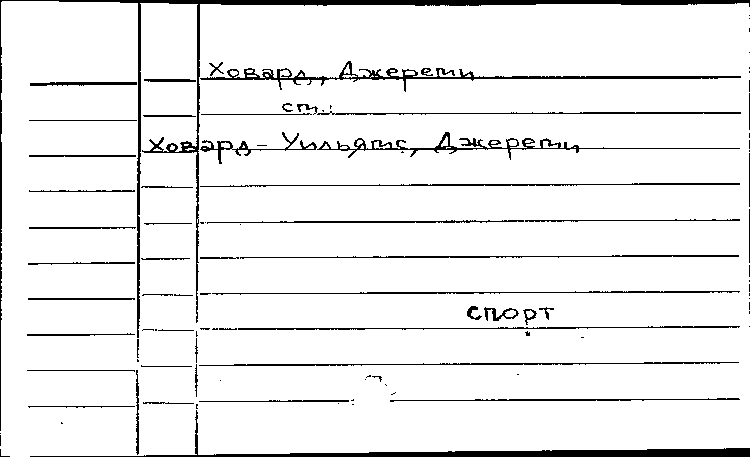 Ховард, Джереми
см.:
Ховард-Уильямс, Джереми
спорт